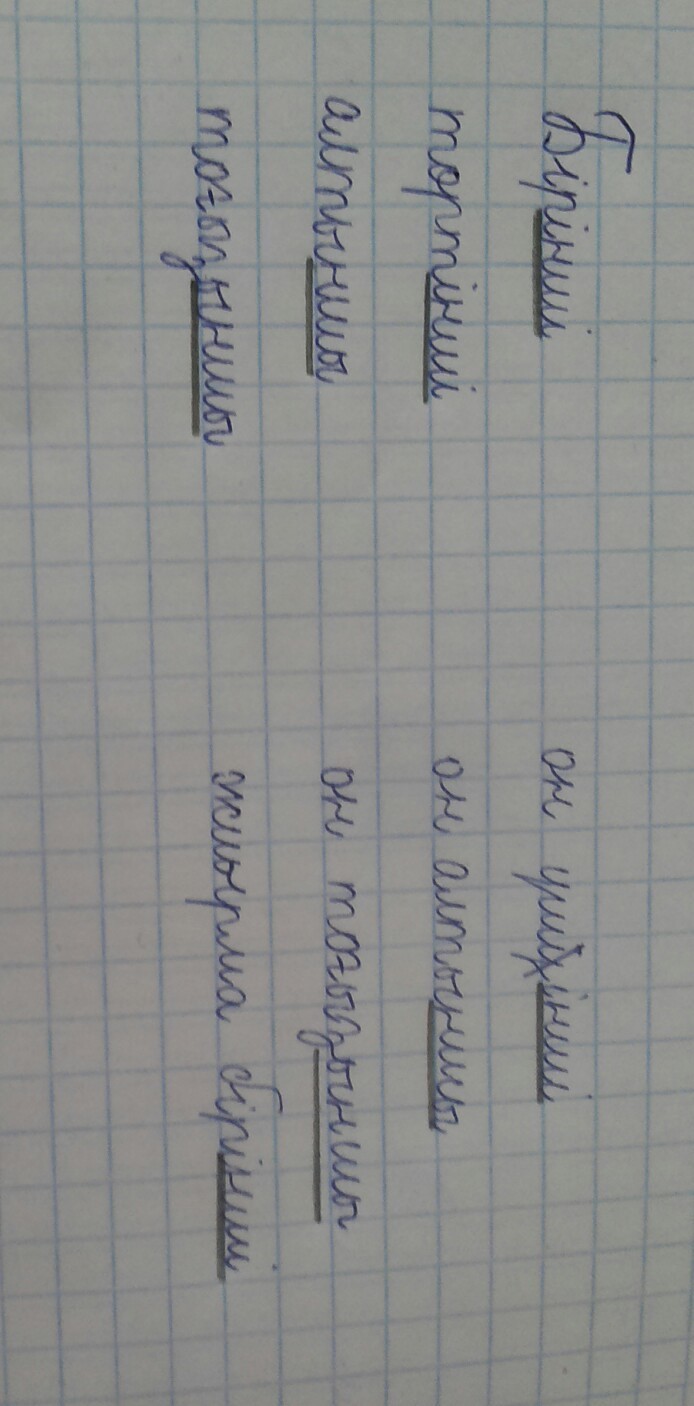 Бірінші он үшінші
төртінші он алтыншы
алтыншы он тоғызыншы
тоғызыншы жиырма бірінші